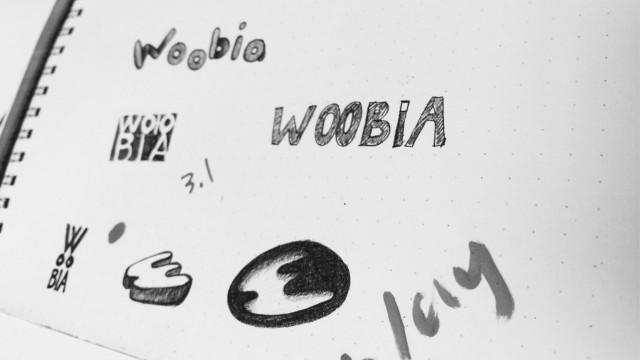 Woobia
WOOBIA
WOO
BIA
3.1
W
OO
BIA